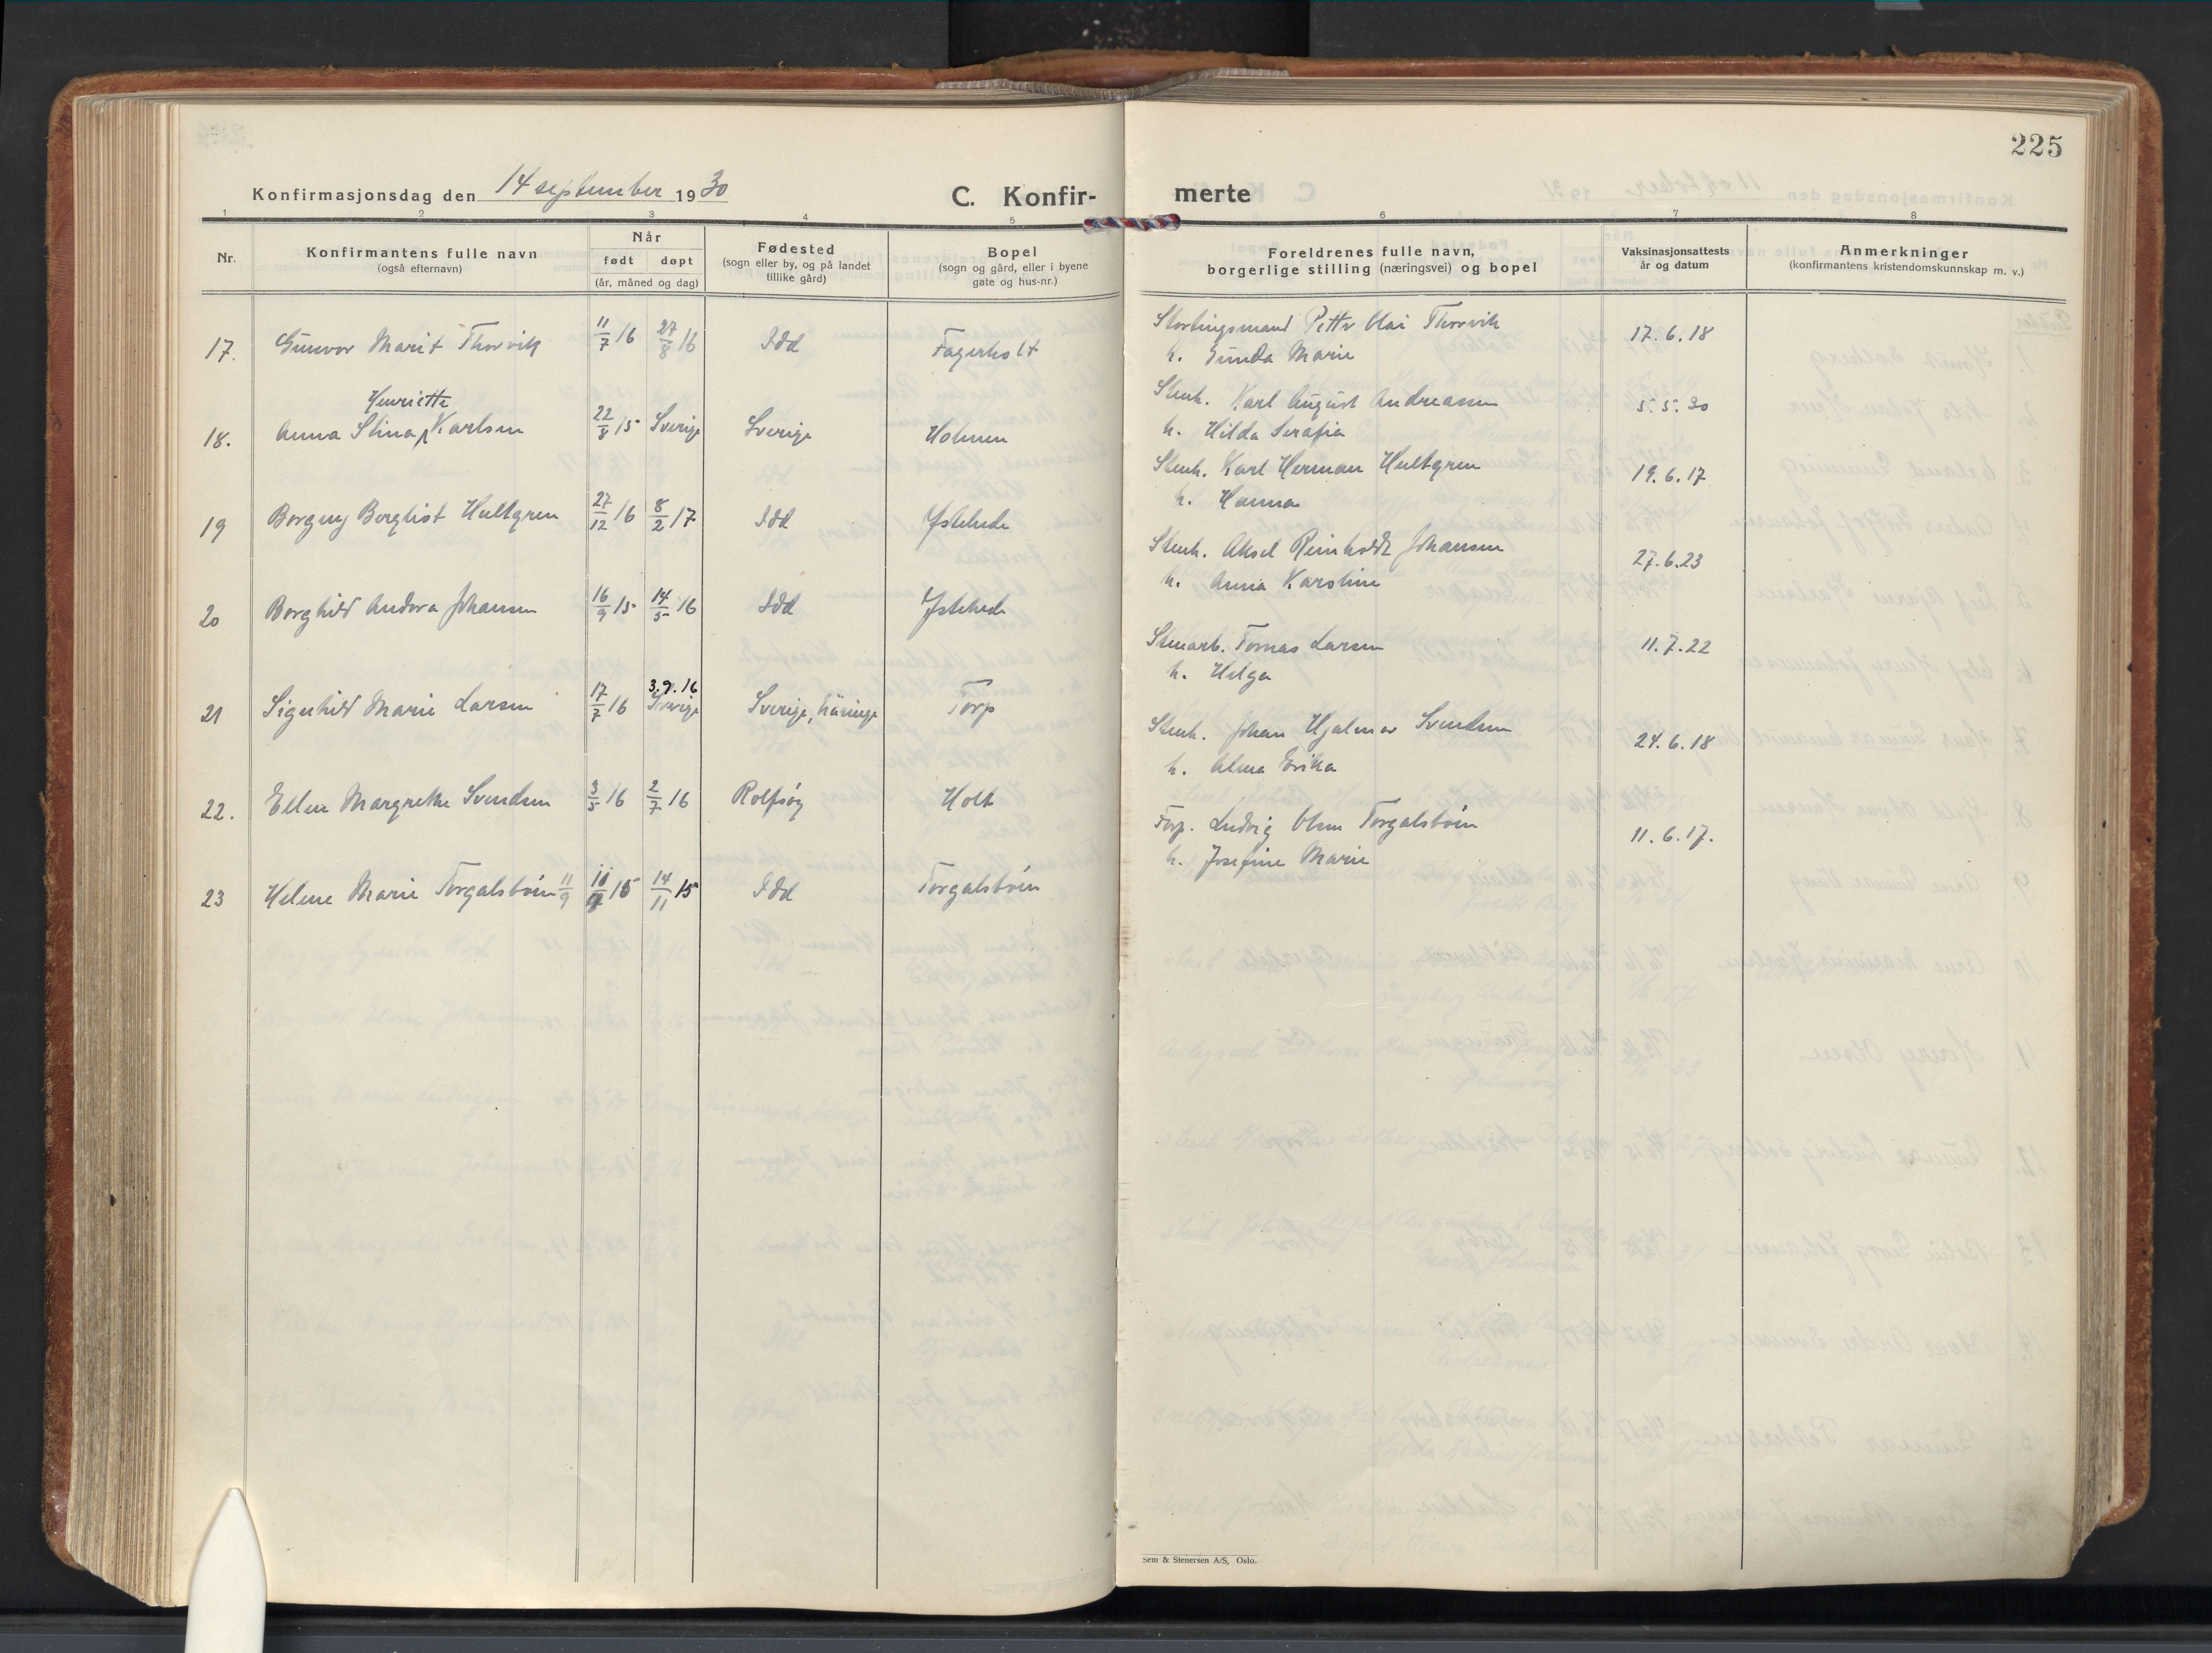 225
Konfirmasjonsdag den 14 september 1930
C. Konfir- merte
1 2 3 4 5 6 7 8
Nr.
Konfirmantens fulle navn
(også efternavn)
Når
født døpt
(år, måned og dag)
Fødested
(sogn eller by, og på landet
tillike gård)
Bopel
(sogn og gård, eller i byene
gate og hus-nr.)
Foreldrenes fulle navn,
borgerlige stilling (næringsvei) og bopel
Vaksinasjonsattests
år og datum
Anmerkninger
(konfirmantens kristendomskunnskap m. v.)
17. Gunvor Marit Thorvik 11/7 16 27/8 16 Idd Fagerholt Stortingsmand Petter Olai Thorvik 17.6.18
h. Gunda Marie
Henriette
18. Anna Stina Karlsen 22/8 15 Sverige Sverige Holmen Stenh. Karl August Andreasen 5.5.30
h. Hilda Serafia
19 Borgny Bergliot Hultgren 27/12 16 8/2 17 Idd Ystehede Stenh. Karl Herman Hultgren 19.6.17
h. Hanna
20 Borghild Andora Johansen 16/9 15 14/5 16 Idd Ystehede Stenh. Aksel Reinholdt Johansen 27.6.23
h. Anna Karoline
3.9.16
21 Signhild Marie Larsen 17/7 16 Sverige Sverige, Häringe Torp Stenarb. Tomas Larsen 11.7.22
h. Helga
22. Ellen Margrethe Svendsen 3/5 16 2/7 16 Rolfsøy Holt Stenh. Johan Hjalmar Svendsen 24.6.18
h. Alma Erika
23 Helene Marie Torgalsbøen 11/9 15 14/11 15 Idd Torgalsbøen Forp. Ludvig Olsen Torgalsbøen 11.6.17.
h. Josefine Marie
Sem & Stenersen A/S, Oslo.